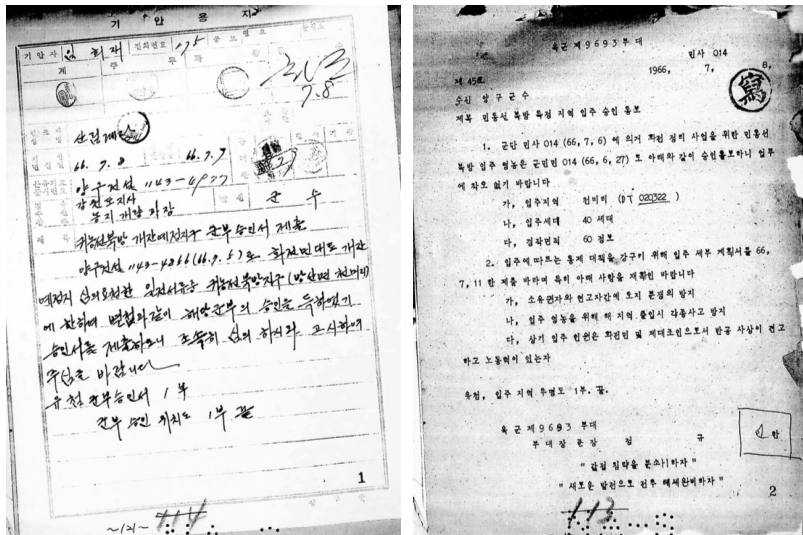 기 안 용 지
기안자
전화번호
175
공 보 필 요
과 장
7.8
산림계
66. 7. 8
66. 7. 9
양구건설 1143-4977
강원도지사
농지개량과장
군 수
제 목
귀농선북방 개간예정지구 군부승인서 제출
양구건설 1143-4266(66.9.5)로 화전민대토개간
예정지 심의요청한 일건서류중 귀농선북방지구(방산면 천미리)
에 한하여 별첨과 같이 해당군부의 승인을 득하였기
승인서를 제출하오니 조속히 심의하시와 고시하여
주심을 바랍니다
유첨 군부승인서 1부
군부 승인 위치도 1부 끝
1
양 구 군
~121~
114
육군 제 9693 부 대
민사 014
제 45호
1966, 7, 8,
寫
수신 양구군수
제목 민통선 북방 특정 지역 입주 승인 통보
1. 군단 민사 014 (66, 7, 6) 에 의거 화전 정리 사업을 위한 민통선
북방 입주 영농은 군민민 014 (66, 6, 27) 로 아래와 같이 승인통보하니 업무
에 착오 없기 바랍니다
가, 입주지역 천미리 (DT 020322 )
나, 입주세대 40 세대
다, 경작면적 60 정보
2. 입주에 따르는 통제 대책을 강구키 위해 입주 세부 계획서를 66,
7, 11 한 제출 바라며 특히 아래 사항을 재확인 바랍니다
가, 소유권자와 연고자간에 토지 분쟁의 방지
나, 입주 영농을 위해 해 지역 출입시 각종사고 방지
다, 상기 입주 인원은 화전민 및 제대조인으로서 반공 사상이 견고
하고 노동력이 있는자
유첨, 입주 지역 투명도 1부. 끝.
육 군 제 9693 부대
부 대 장 준 장 정 규 한
"간접 침략을 분쇄하자"
"새로운 발전으로 전투 태세완비하자"
2
113